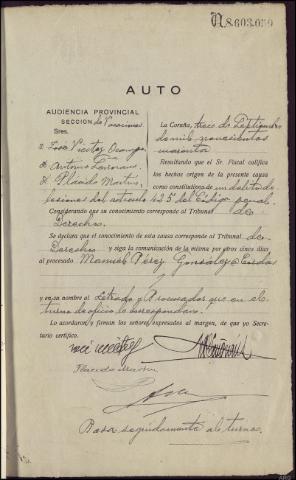 N.8.603.059
AUTO
AUDIENCIA PROVINCIAL
SECCIÓN de Vacaciones
Sres.
D. José Viertez Ocampo
D. Antonio
D. Plácido Martin
La Coruña, trece de Septiembre
de mil novecientos
cuarenta
Resultando que el Sr. Fiscal califica
los hechos origen de la presente causa
como constitutivos de un delito de
lesiones del artículo 425 del Código penal.
Considerando que su conocimiento corresponde al Tribunal de
Derecho.
Se declara que el conocimiento de esta causa corresponde al Tribunal de
Derecho y siga la comunicación de la misma por otros cinco días
al procesado Manuel Pérez González
y
y en su nombre al Letrado y Procurador que en el
turno de oficio le correspondan.
Lo acordaron y firman los señores expresados al margen, de que yo Secre-
tario certifico.
Plácido Martin
Pasa seguidamente al turno.